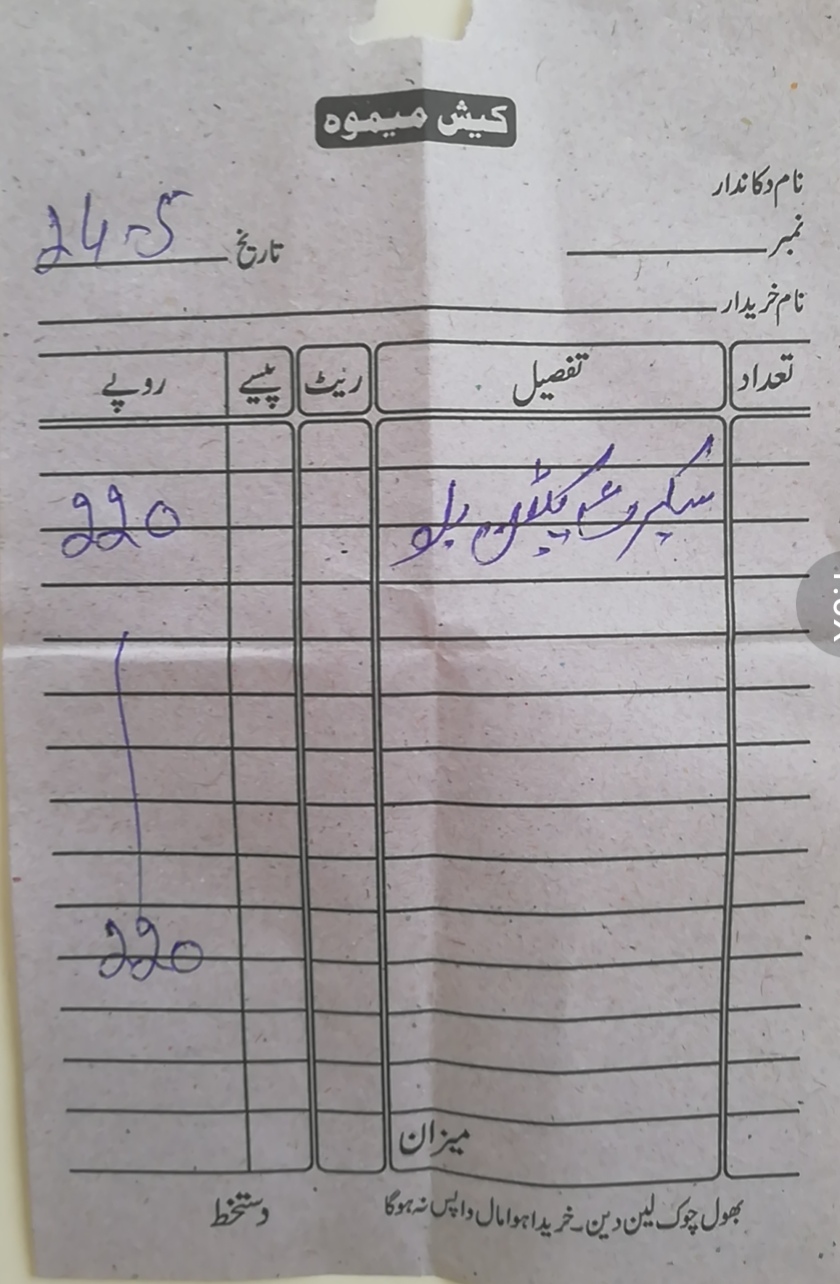 کیش میمو
نام دکاندار
نمبر
تاریخ 24-5
نام خریدار
تعداد تفصیل ریٹ پیسے روپے
220
220
میزان
بھول چوک لین دین۔ خریدا ہوا مال واپس نہ ہوگا
دستخط